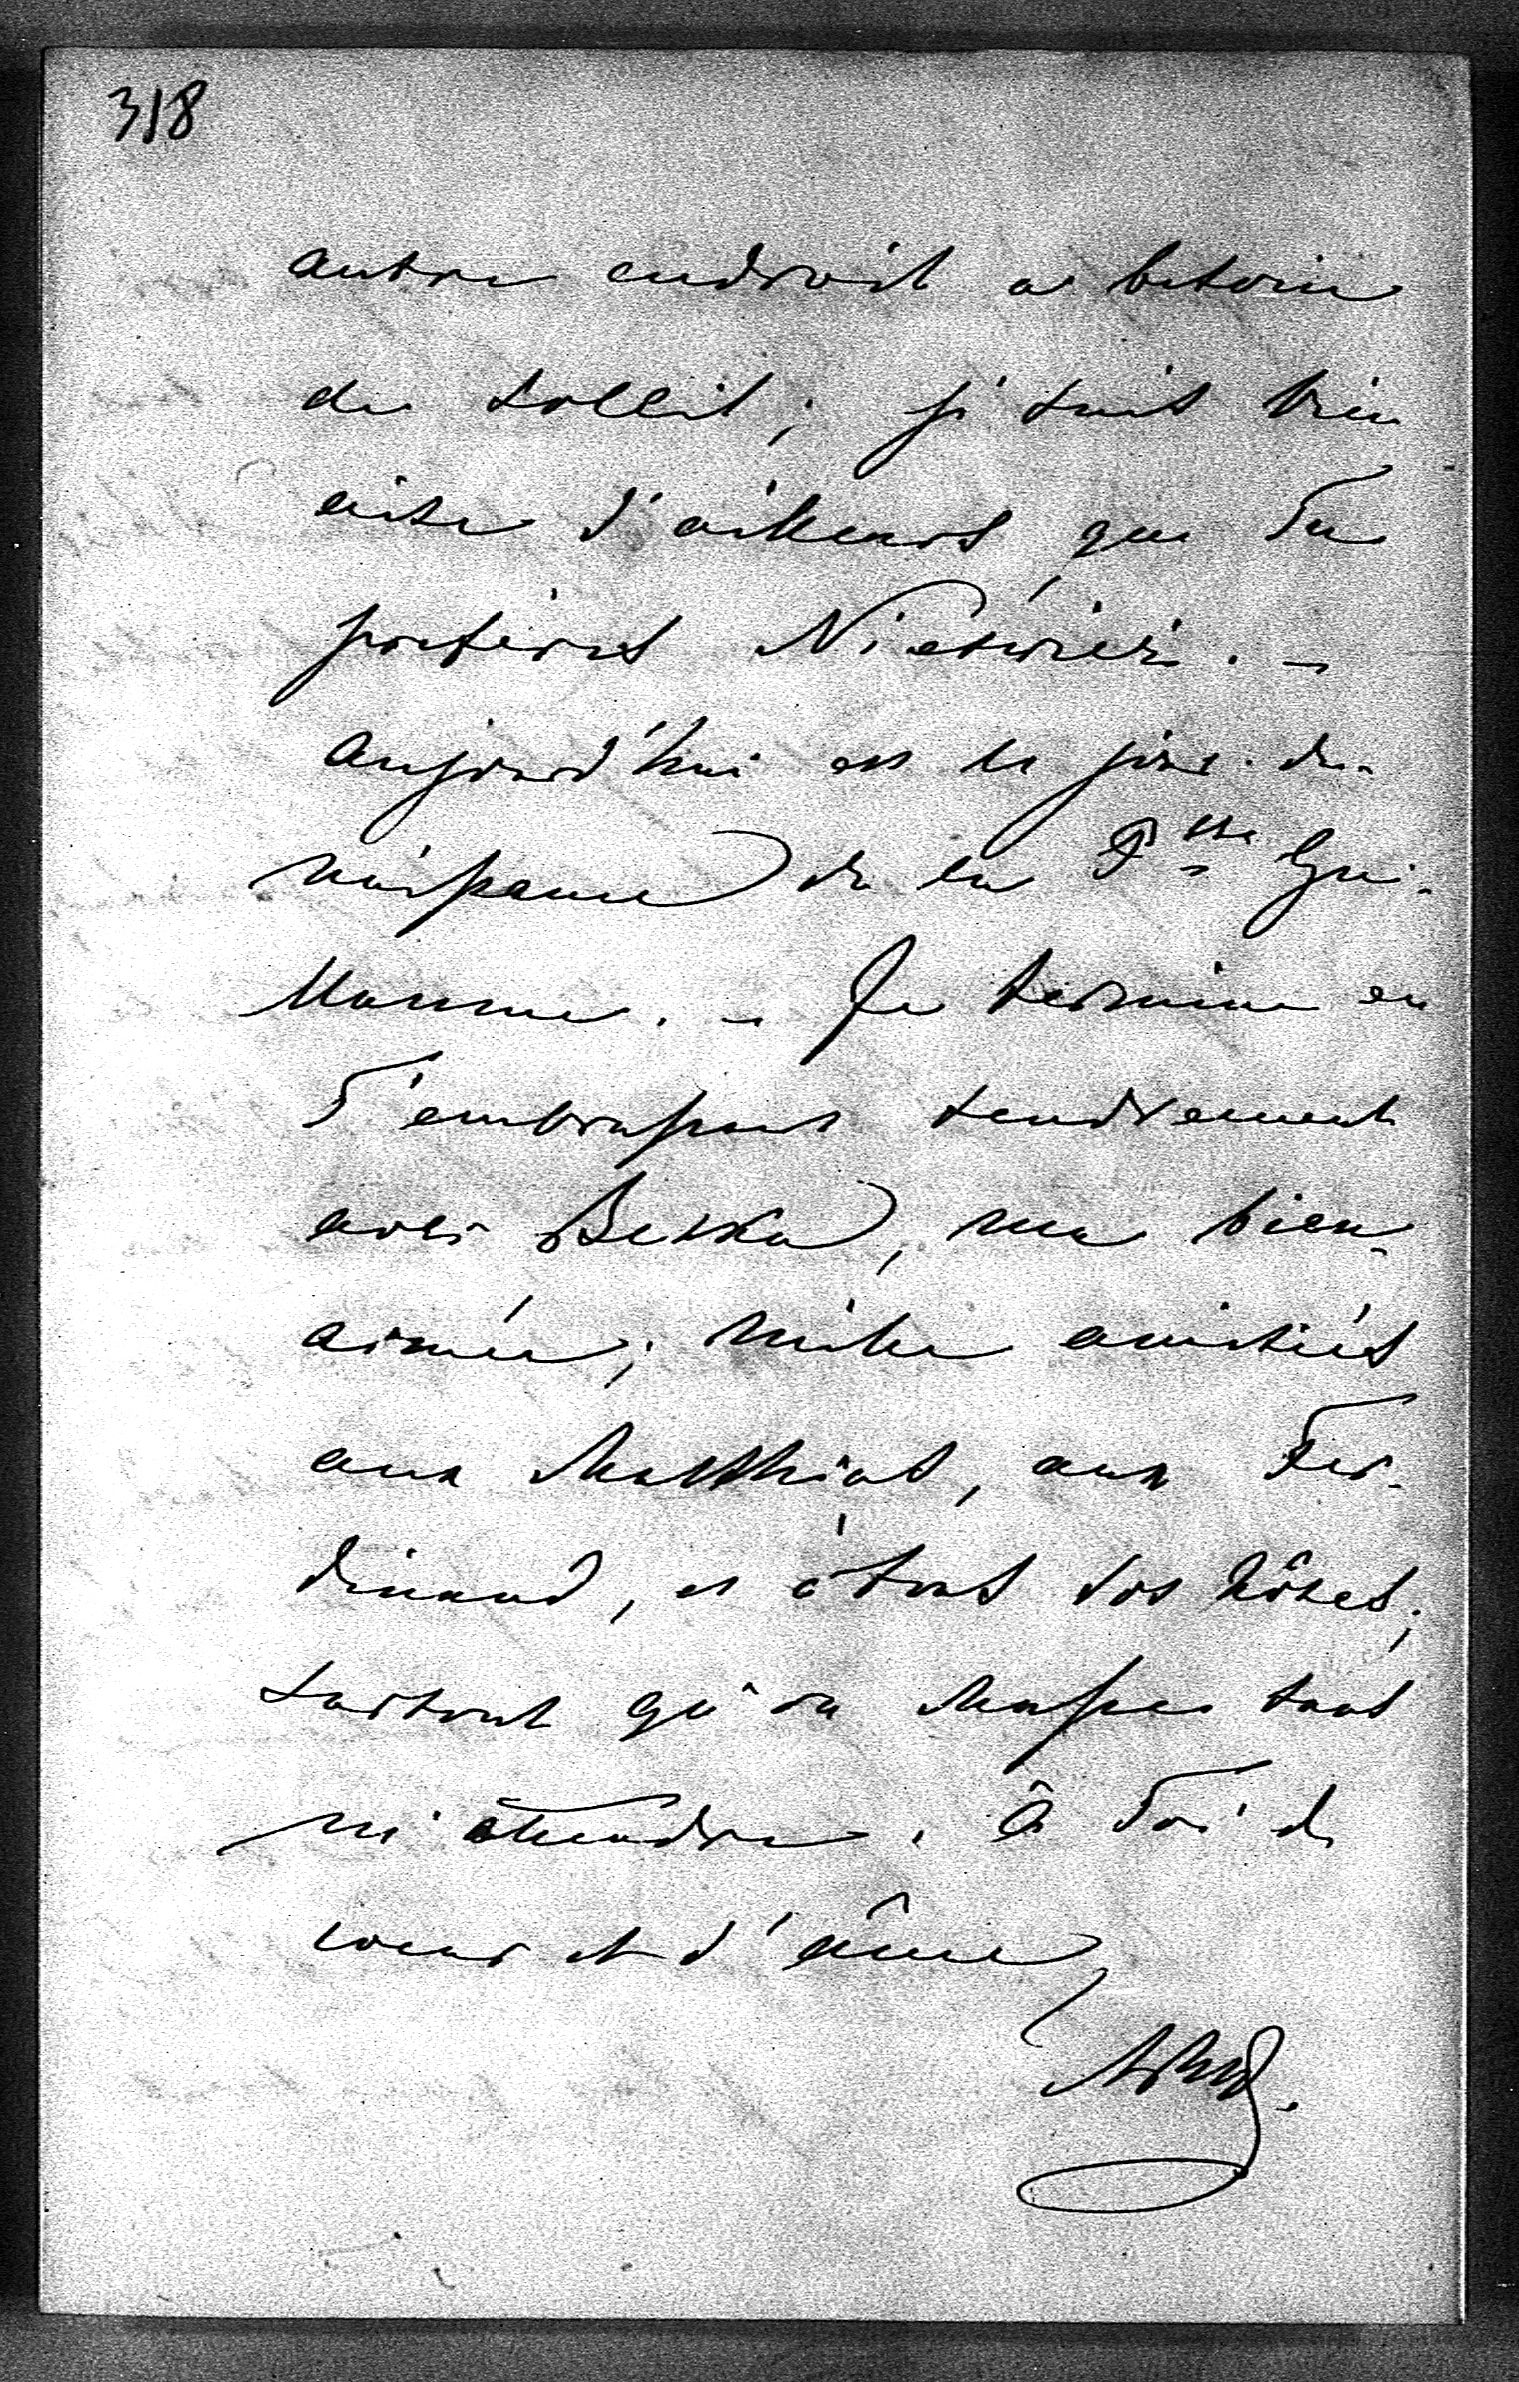 318
autre endroit a besoin
de soleil; je suis bien
aise d'ailleurs que Tu
preferes Nieświeź. –
aujourd'hui est le jour de
naissance de la Psse Gui-
Maman. – Je termine en
T'embrassant tendrement
avec Bexka, ma bien-
aimée; mille amitiés
aux Matthias, aux Fer-
dinand, et à tous vos hôtes;
surtout qu'on chasse sans
m'attendre. à Toi de
cœur et d'âme